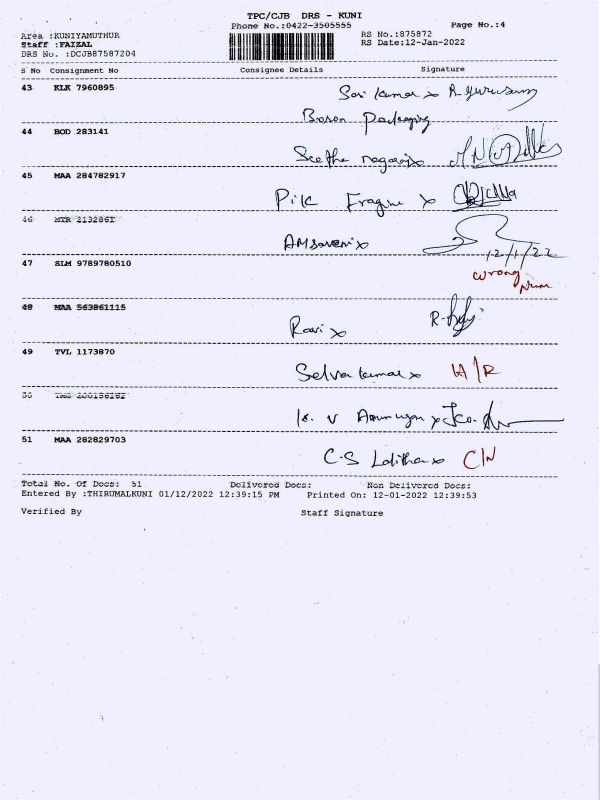 TPC/CJB DRS - KUNI
Phone No.:0422-3505555 Page No.:4
Area :KUNIYAMUTHUR RS No.:875872
Staff :FAIZAL RS Date:12-Jan-2022
DRS No. :DCJB87587204
S No Consignment No Consignee Details Signature
43 KLK 7960895
Sasi kumar x R
Boson Packaging
44 BOD 283141
Seetha nagarajx
45 MAA 284782917
x
46 MTR 2132861
x
12/1/22
47 SLM 9789780510
wrong
Num
48 MAA 563861115
Ravi x R.
49 TVL 1173870
Selva kumar x
50
k. v x
51 MAA 282829703
C.S Lalitha x C/N
Total No. Of Docs: 51 Delivered Docs: Non Delivered Docs:
Entered By :THIRUMALKUNI 01/12/2022 12:39:15 PM Printed On: 12-01-2022 12:39:53
Verified By Staff Signature